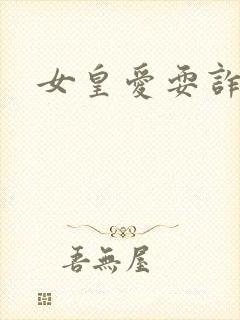 女皇愛耍詐
吾無屋